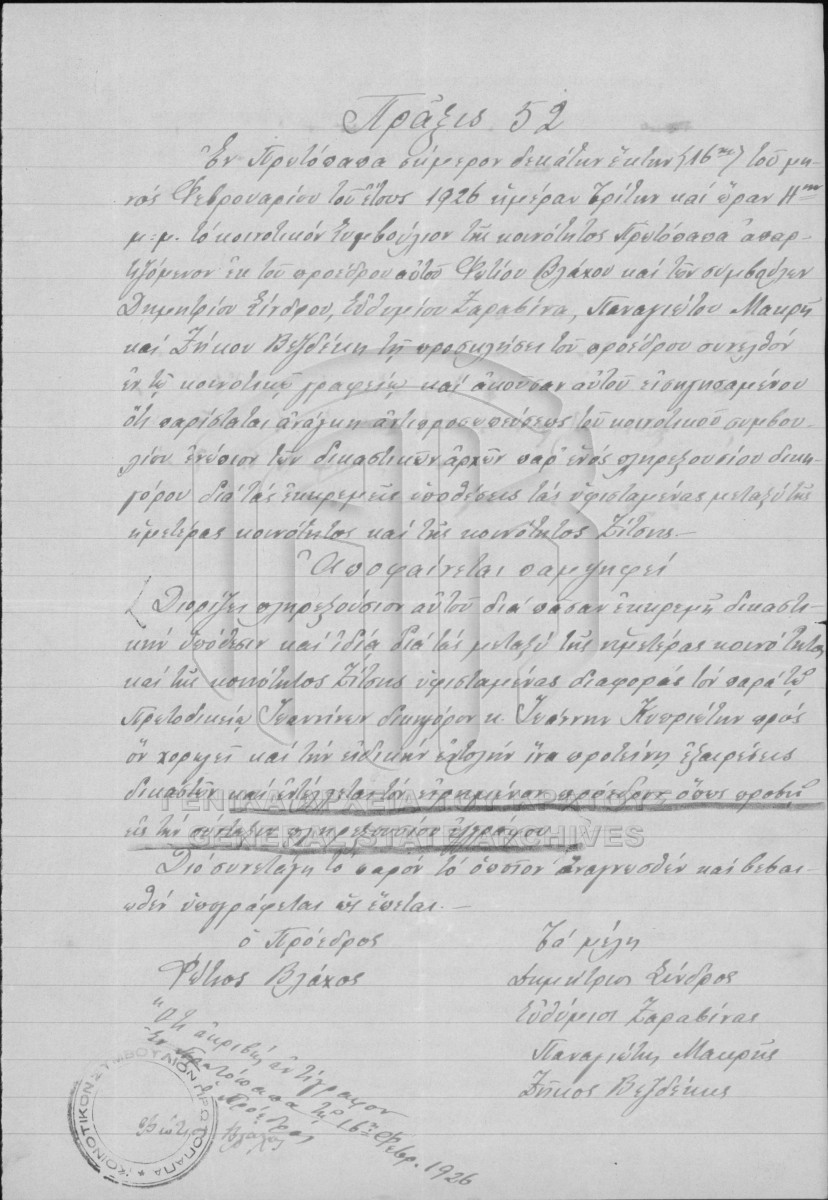 Πρᾶξις 52
Ἐν Πρωτόπαπα σήμερον δεκάτην ἕκτην (16ην) τοῦ μη-
νός Φεβρουαρίου τοῦ ἔτους 1926 ἡμέραν Τρίτην καί ὥραν
μ.μ. τό κοινοτικόν Συμβούλιον τῆς κοινότητος Πρωτόπαπα ἀπαρ-
τιζόμενον ἐκ τοῦ προέδρου αὐτοῦ Φωτίου Βλάχου καί τῶν συμβούλων
Δημητρίου Σίνδρου, Εὐθυμίου Ζαραβίνα, Παναγιώτου Μακρῆ
καί Ζήκου Βεζδέκη τῇ προσκλήσει τοῦ προέδρου συνελθόν
ἐν τῷ κοινοτικῷ γραφείῳ καί ἀκοῦσαν αὐτοῦ εἰσηγησαμένου
ὅτι παρίσταται ἀνάγκη ἀντιπροσωπεύσεως τοῦ κοινοτικοῦ συμβου-
λίου ἐνώπιον τῶν δικαστικῶν ἀρχῶν παρ' ἑνός πληρεξουσίου δικη-
γόρου διά τάς ἐκκρεμεῖς ὑποθέσεις τάς ὑφισταμένας μεταξύ τῆς
ἡμετέρας κοινότητος καί τῆς κοινότητος Ζίτσης.-
Ἀποφαίνεται παμψηφεί
Διορίζει πληρεξούσιον αὐτοῦ διά πᾶσαν ἐκκρεμῆ δικαστι-
κήν ὑπόθεσιν καί ἰδίᾳ διά τάς μεταξύ τῆς ἡμετέρας κοινότητος
καί τῆς κοινότητος Ζίτσης ὑφισταμένας διαφοράς τόν παρά τῷ
Πρωτοδικείῳ Ἰωαννίνων δικηγόρον κ. Ἰωάννην Κυπριώτην πρός
ὅν χορηγεῖ καί τήν εἰδικήν ἐντολήν ἵνα προτείνῃ ἐξαιρέσεις
δικαστῶν καί ἐντέλλεται τόν εἰρημένον πρόεδρον ὅπως προβῇ
εἰς τήν σύνταξιν πληρεξουσίου ἐγγράφου
Διό συνετάγη τό παρόν τό ὁποῖον ἀναγνωσθέν καί βεβαι-
ωθέν ὑπογράφεται ὡς ἕπεται.-
ὁ Πρόεδρος
Φώτιος Βλάχος
Τά μέλη
Δημήτριος Σίνδρος
Εὐθύμιος Ζαραβίνας
Παναγιώτης Μακρῆς
Ζῆκος Βεζδέκης
Ὅτι ἀκριβές ἀντίγραφον
Ἐν Πρωτόπαπα τῇ 16ῃ Φεβρ. 1926
ὁ Πρόεδρος
Φώτι
Βλάχος
ΚΟΙΝΟΤΙΚΟΝ ΣΥΜΒΟΥΛΙΟΝ ΠΡΩΤΟΠΑΠΑ
ΓΕΝΙΚΑ ΑΡΧΕΙΑ ΤΟΥ ΚΡΑΤΟΥΣ
GENERAL STATE ARCHIVES